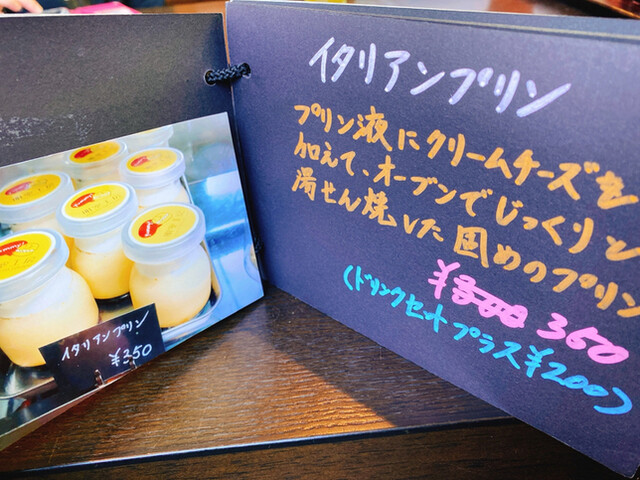 イタリアンプリン
プリン液にクリームチーズを
加えて、オーブンでじっくりと
湯せん焼した固めのプリン
¥300 360
(ドリンクセットプラス¥200)
イタリアンプリン
¥350